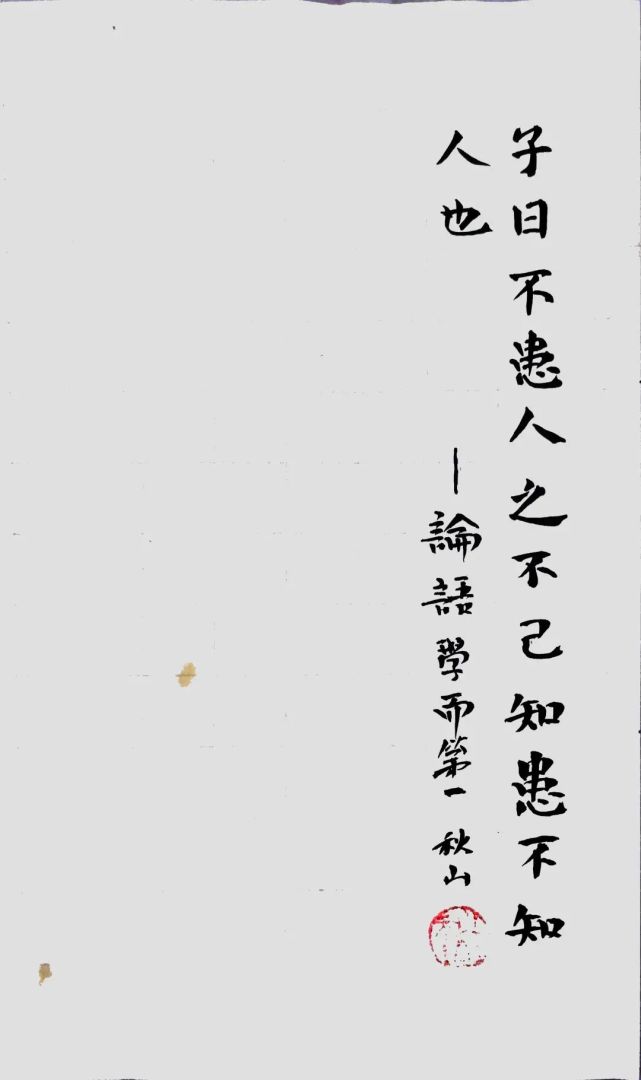 子曰不患人之不己知患不知
人也
—論語學而第一 秋山